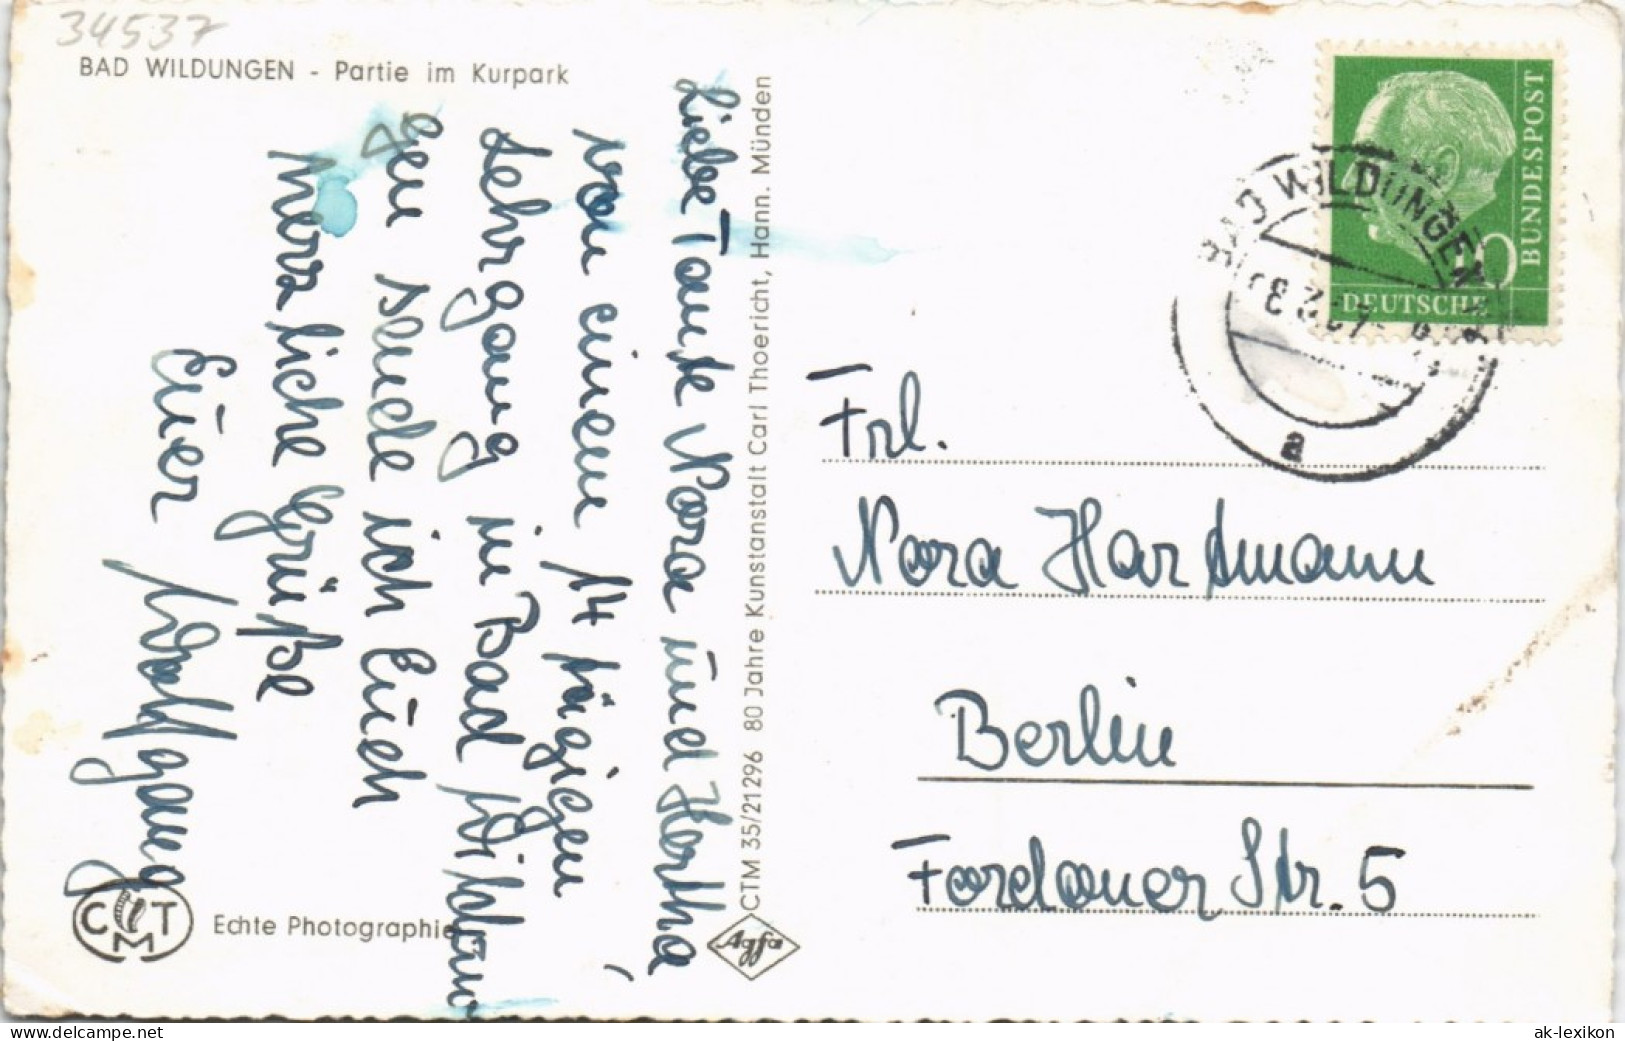 34537
BAD WILDUNGEN - Partie im Kurpark
Liebe Tante Nora und Hertha,
von einem 14 tägigen
Lehrgang in Bad Wildun
gen sende ich Euch
Herzliche Grüße
Euer
Wolfgang
Echte Photographie
C M T
CTM 35/21296 80 Jahre Kunstanstalt Carl Thoericht, Hann. Münden
Agfa
DEUTSCHE
BUNDESPOST
10
BAD WILDUNGEN
a
Frl.
Nora Hartmann
Berlin
Fordoner Str. 5
© oldthing.de
ak-lexikon